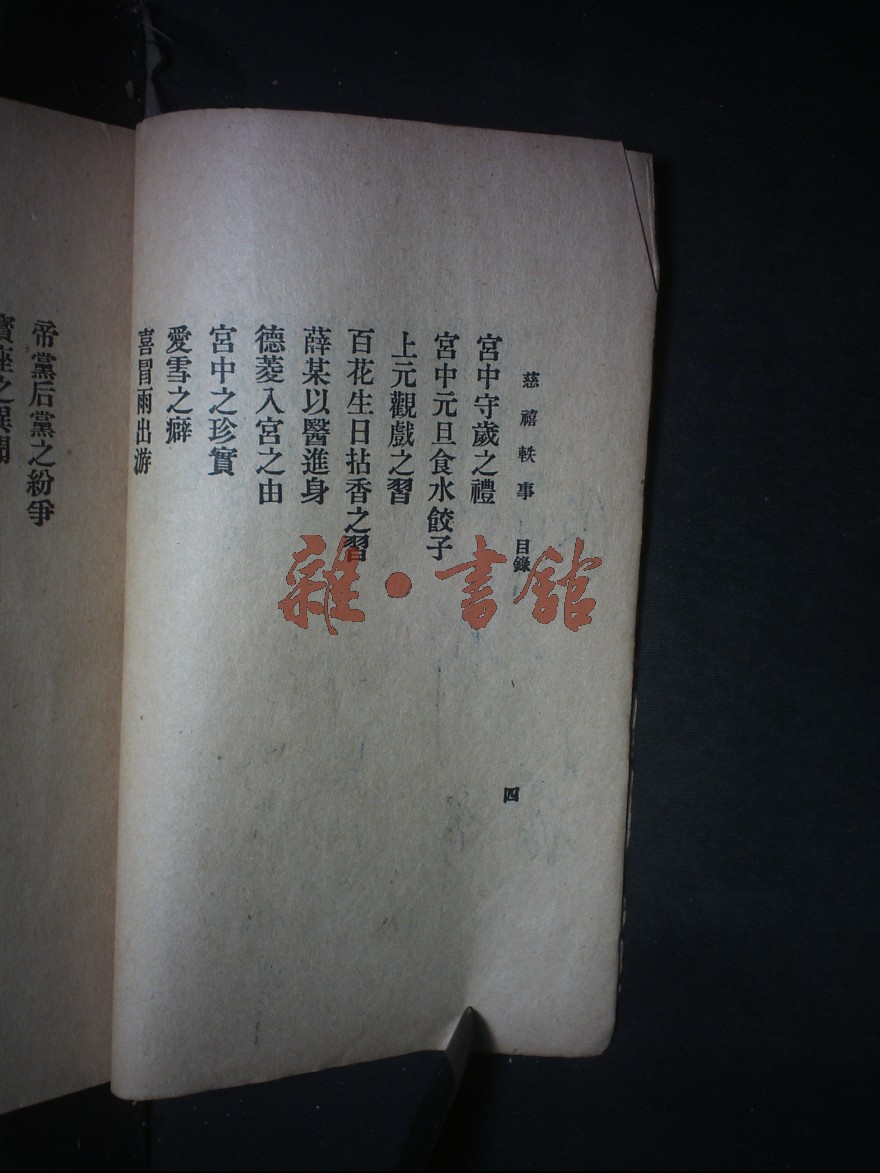 慈禧軼事 目錄 四
宮中守歲之禮
宮中元旦食水餃子
上元觀戲之習
百花生日拈香之習
薛某以醫進身
德菱入宮之由
宮中之珍實
愛雪之癖
喜冒雨出游
帝黨后黨之紛爭
寶座之異聞
雜·書館